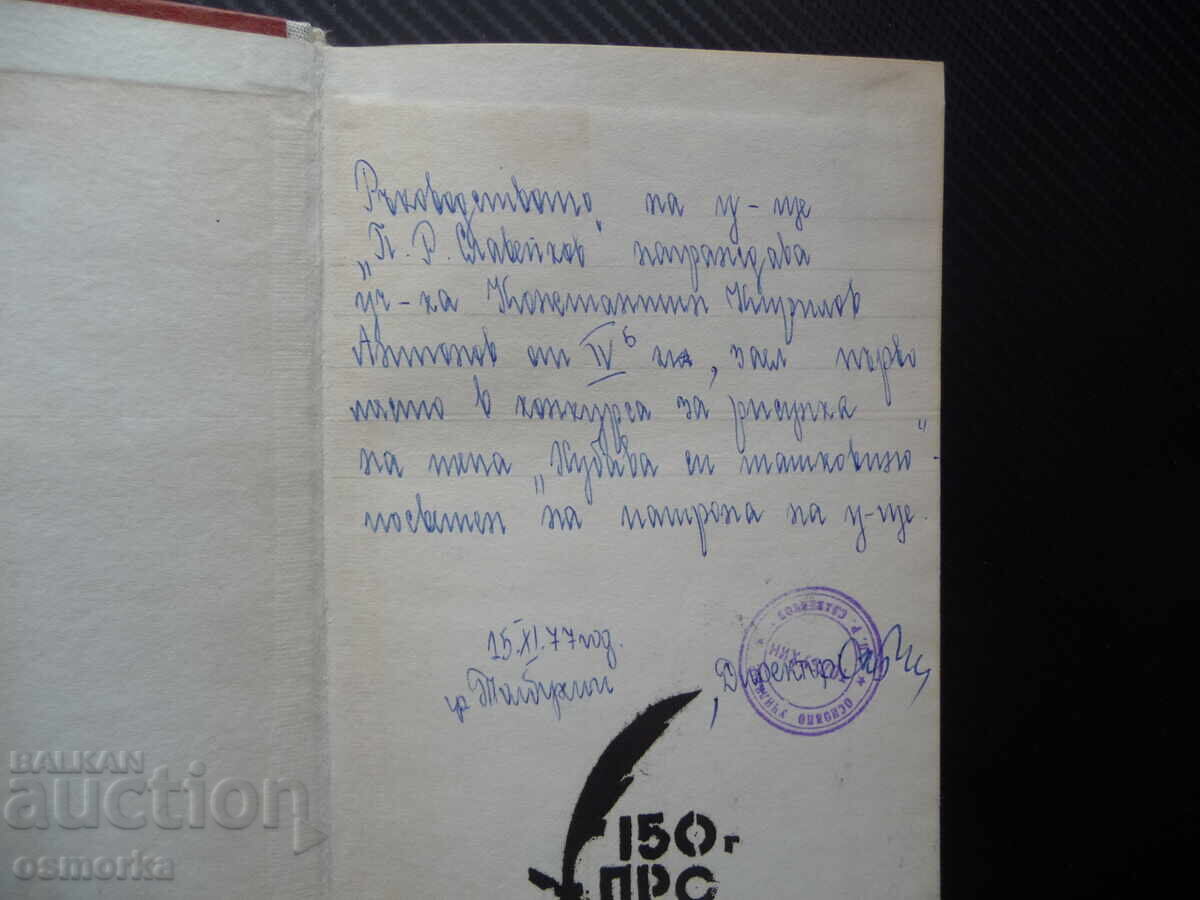 Ръководството на у-ще
„П. Р. Славейков" награждава
уч-ка Константин Кирилов
от IVб кл, заел първо
място в конкурса за рисунка
на тема „Хубава си татковино"
посветен на патрона на у-ще.
15.XI.77 год.
гр. Толбухин
Директор:
ОСНОВНО УЧИЛИЩЕ
150г
ПРС
BALKAN
auction
osmorka